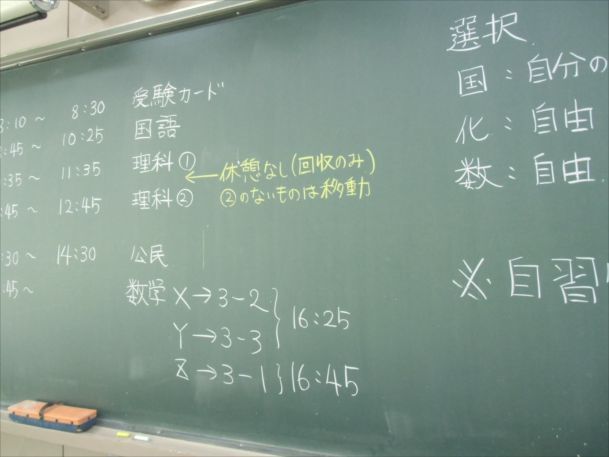 8:10～ 8:30 受験カード
:45～ 10:25 国語
:35～ 11:35 理科① ←休憩なし(回収のみ)
:45～ 12:45 理科② ②のないものは移動
:30～ 14:30 公民
:45～ 数学 X→3-2 } 16:25
Y→3-3
Z→3-1 } 16:45
選択
国:自分の
化:自由
数:自由
※自習